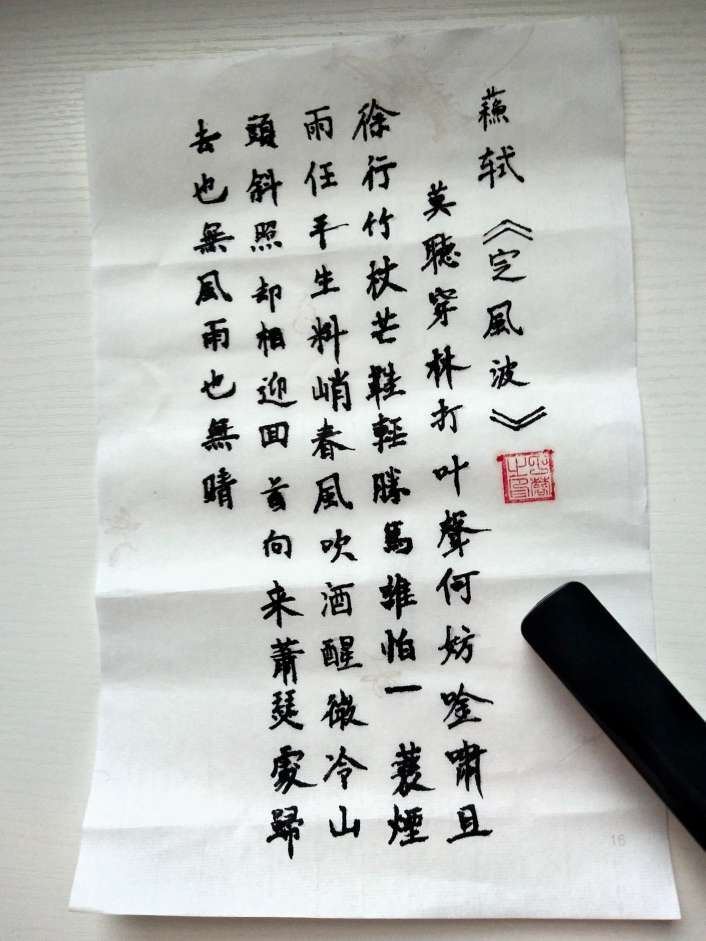 蘇轼《定風波》
莫聽穿林打叶聲何妨唫嘯且
徐行竹杖芒鞋輕勝馬誰怕一蓑煙
雨任平生料峭春風吹酒醒微冷山
頭斜照却相迎回首向来蕭瑟處歸
去也無風雨也無晴
16